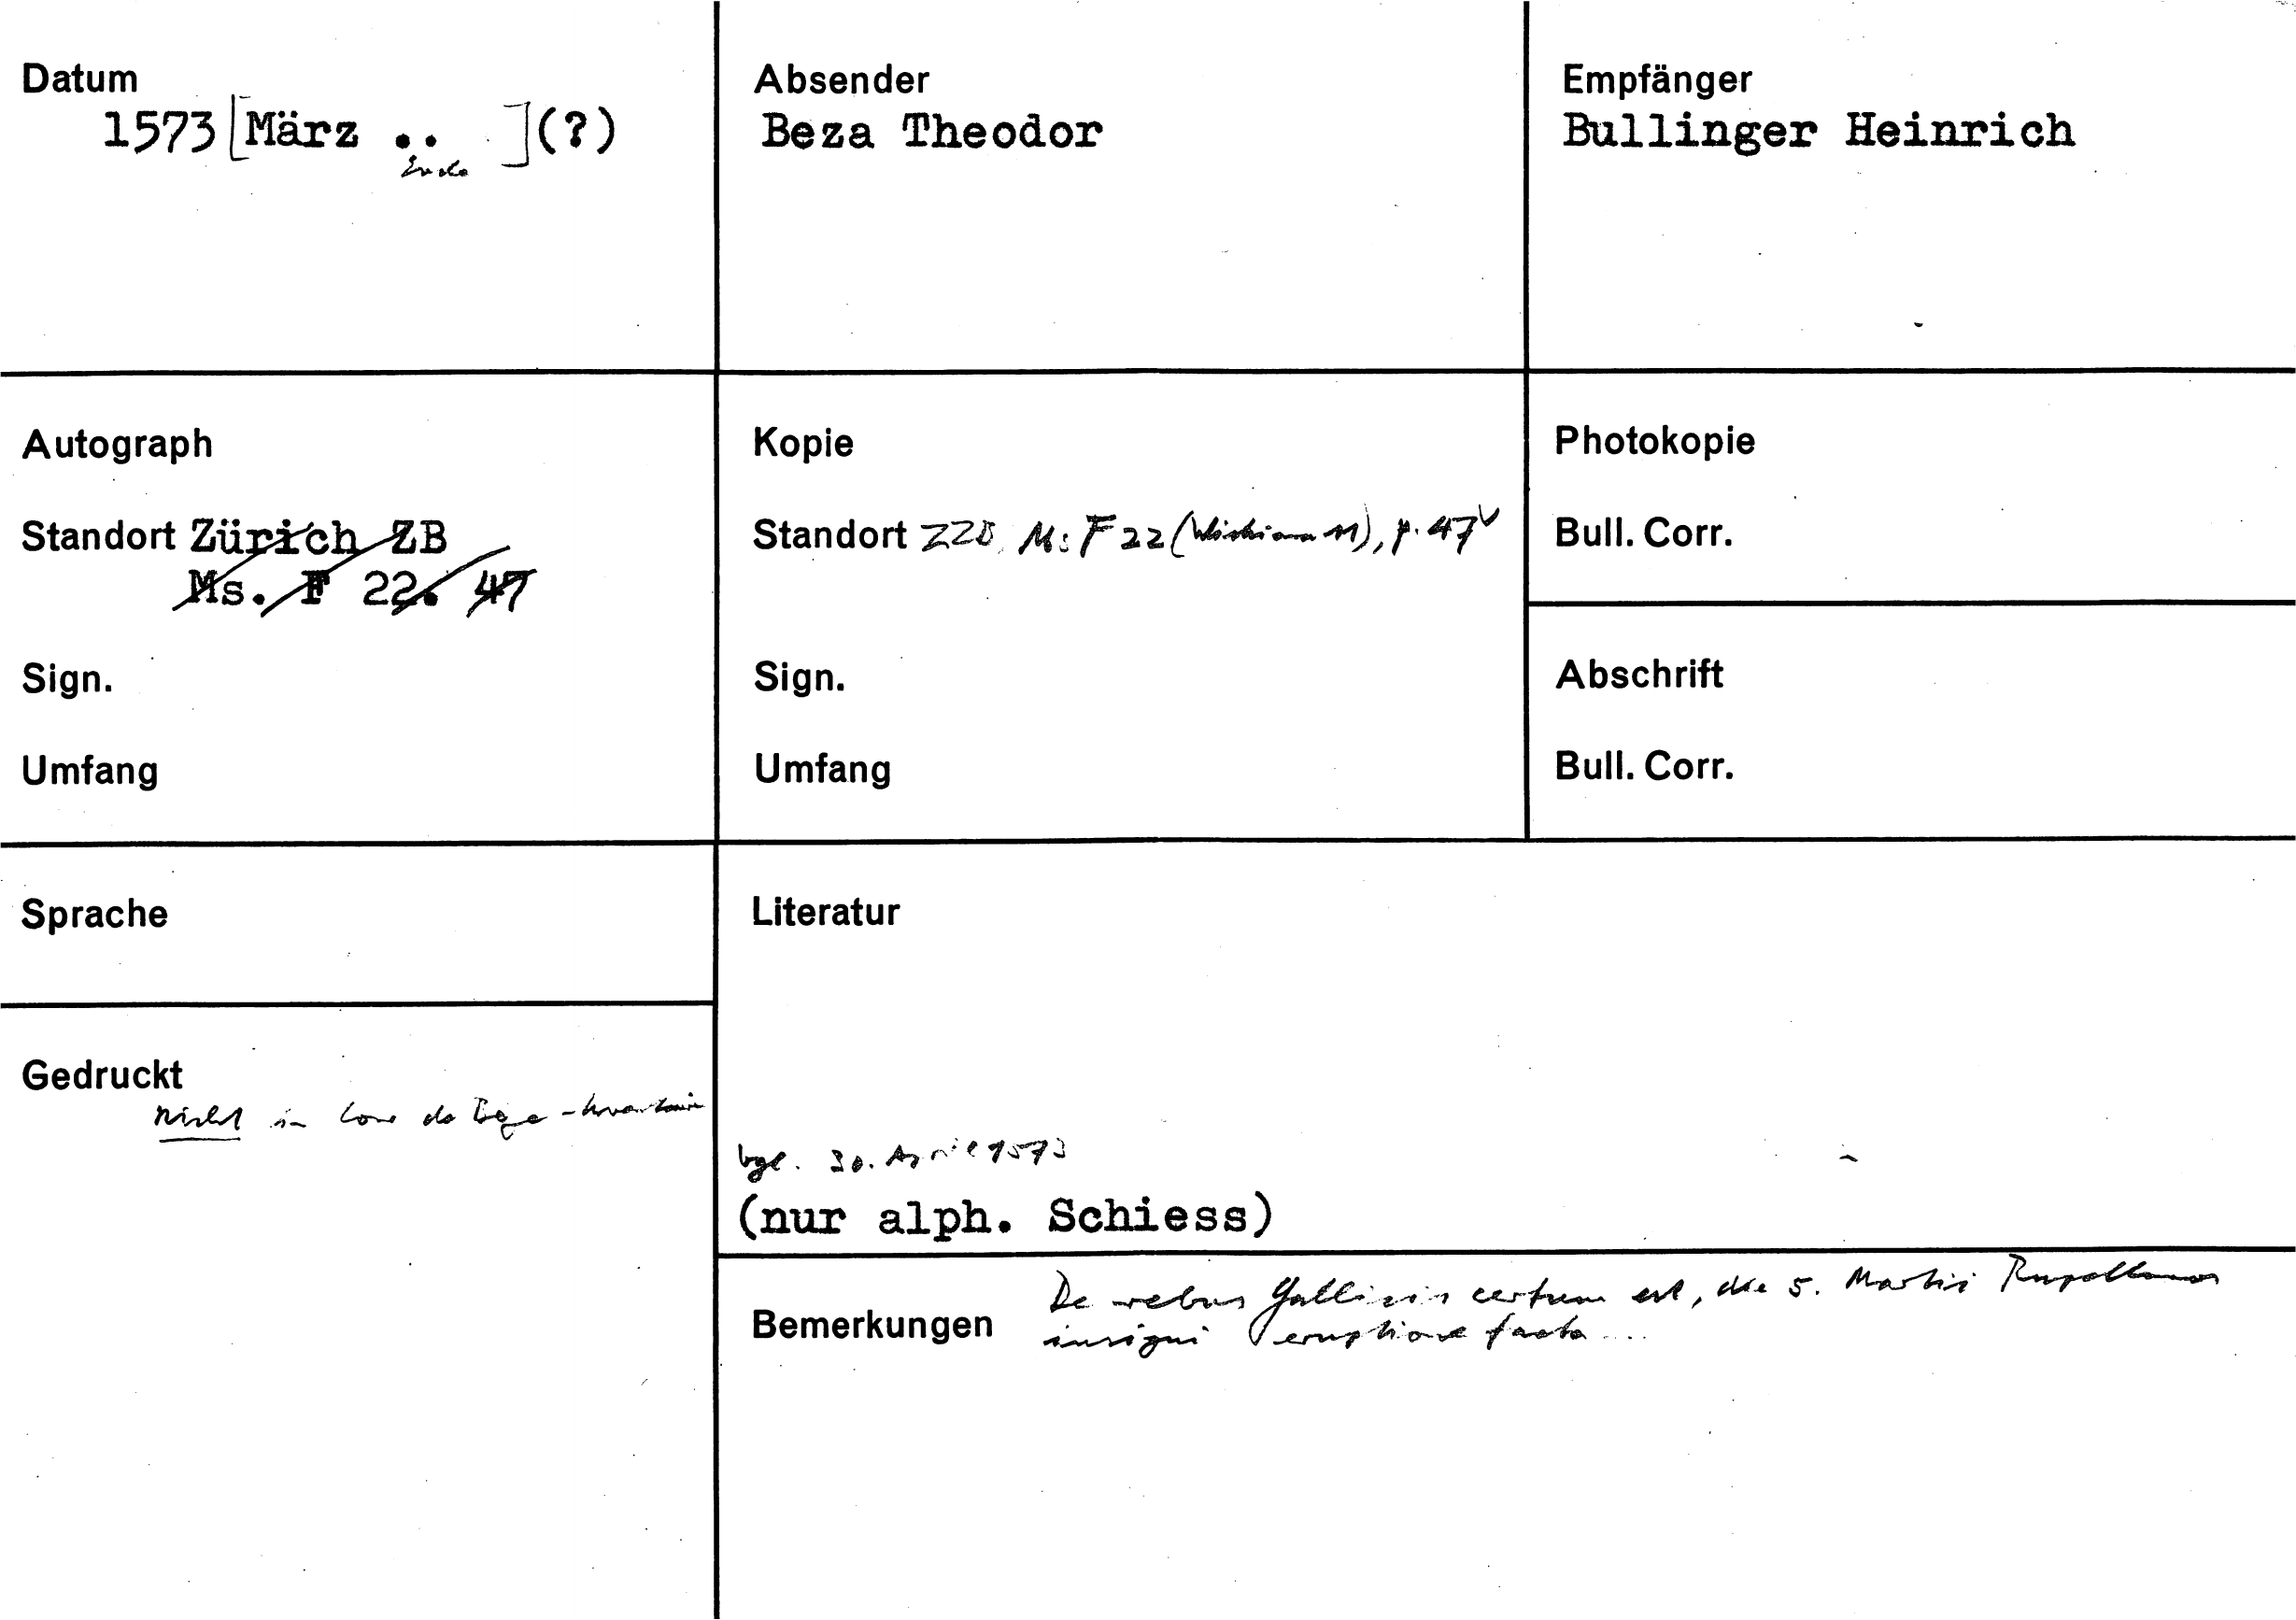 Datum
1573 [März .. ](?)
Ende
Absender
Beza Theodor
Empfänger
Bullinger Heinrich
Autograph
Standort Zürich ZB
Ms. F 22. 47
Sign.
Umfang
Kopie
Standort ZZB, Ms F 22 ( 11), p. 47v
Sign.
Umfang
Photokopie
Bull. Corr.
Abschrift
Bull. Corr.
Sprache
Gedruckt
nicht in de Bèze
Literatur
vgl. 30. April 1573
(nur alph. Schiess)
Bemerkungen
De rebus Gallicis certum est, die 5. Martii
insigni eruptione facta ...